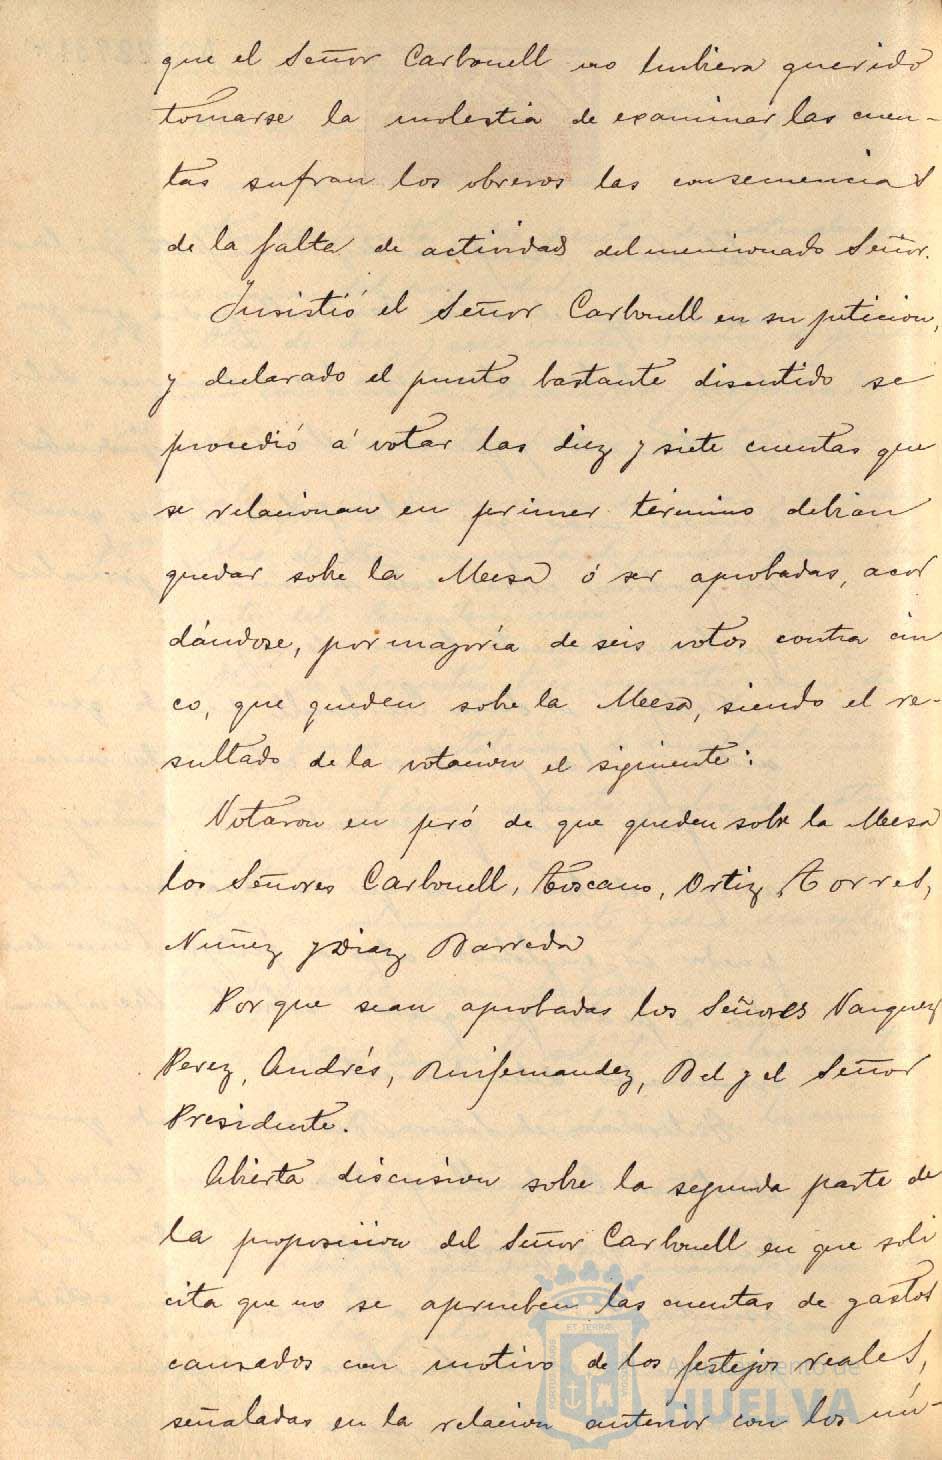 que el Señor Carbonell no hubiera querido
tomarse la molestia de examinar las cuen-
tas sufran los obreros las consecuencias
de la falta de actividad del mencionado Señor.
Insistió el Señor Carbonell en su peticion,
y declarado el punto bastante discutido se
procedió á votar las diez y siete cuentas que
se relacionan en primer término debian
quedar sobre la Meesa ó ser aprobadas, acor
dándose, por mayoría de seis votos contra cin
co, que queden sobre la Meesa, siendo el re-
sultado de la votacion el siguiente:
Votaron en pró de que queden sobre la Meesa
los Señores Carbonell, Toscano, Ortiz, Torres,
Nuñez y Diaz Barreda
Por que sean aprobadas los Señores Vazquez
Perez, Andrés, Ruifernandez, Bel y el Señor
Presidente.
Abierta discusion sobre la segunda parte de
la proposicion del Señor Carbonell en que soli
cita que no se aprueben las cuentas de gastos
causados con motivo de los festejos reales,
señaladas en la relacion anterior con los nú-
Ayuntamiento de
HUELVA